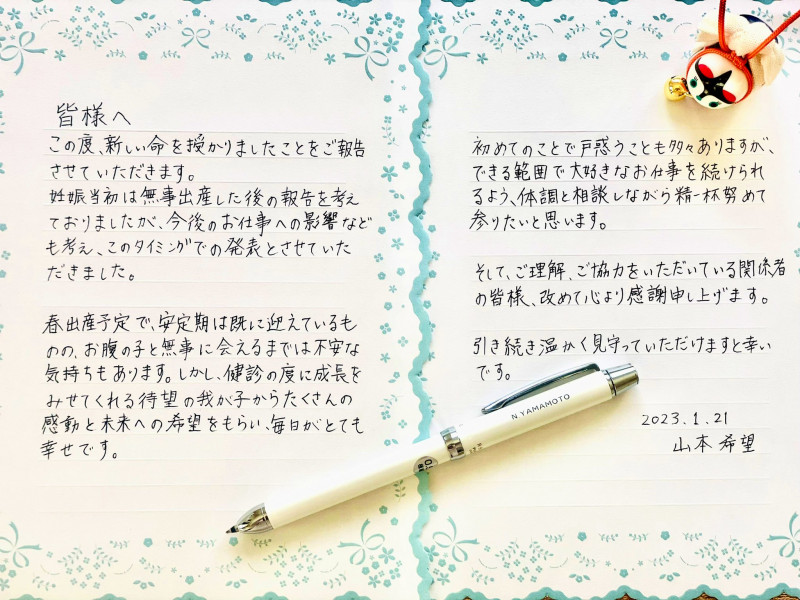 皆様へ
この度、新しい命を授かりましたことをご報告
させていただきます。
妊娠当初は無事出産した後の報告を考え
ておりましたが、今後のお仕事への影響など
も考え、このタイミングでの発表とさせていた
だきました。
春出産予定で、安定期は既に迎えているも
のの、お腹の子と無事に会えるまでは不安な
気持ちもあります。しかし、健診の度に成長を
みせてくれる待望の我が子からたくさんの
感動と未来への希望をもらい、毎日がとても
幸せです。
初めてのことで戸惑うことも多々ありますが、
できる範囲で大好きなお仕事を続けられ
るよう、体調と相談しながら精一杯努めて
参りたいと思います。
そして、ご理解、ご協力をいただいている関係者
の皆様、改めて心より感謝申し上げます。
引き続き温かく見守っていただけますと幸い
です。
2023.1.21
山本希望
N.YAMAMOTO